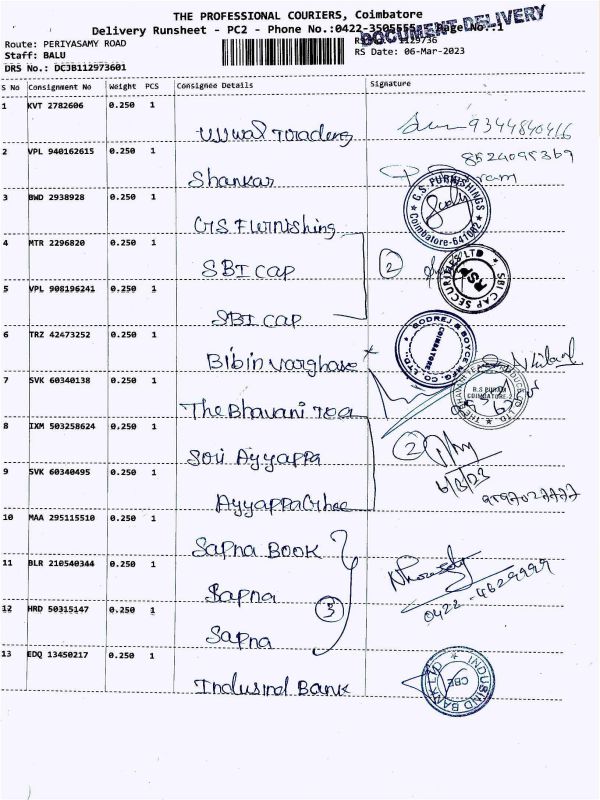 THE PROFESSIONAL COURIERS, Coimbatore
DOCUMENT DELIVERY
Delivery Runsheet - PC2 - Phone No.:0422-3505555
Page No.:1
Route: PERIYASAMY ROAD
Staff: BALU
RS Date: 06-Mar-2023
DRS No.: DCJB112973601
S No Consignment No Weight PCS Consignee Details Signature
1 KVT 2782606 0.250 1
Ujjwal Traders 9344840416
2 VPL 940162615 0.250 1
8524095369
Shankar
3 BWD 2938928 0.250 1
G.S. FURNISHINGS
Coimbatore-641002
GS Furnishing
4 MTR 2296820 0.250 1
SBI Cap 2
SBI CAP SECURITIES LTD
5 VPL 908196241 0.250 1
SBI Cap
GODREJ & BOYCE MFG. CO. LTD.
COIMBATORE
6 TRZ 42473252 0.250 1
Bibin varghase
7 SVK 60340138 0.250 1
R.S PURAM
COIMBATORE-2
The Bhavani Tea
8 IXM 503258624 0.250 1
Sri Ayyappa 2
9 SVK 60340495 0.250 1
6/3/23
Ayyappa Ghee 9597027777
10 MAA 295115510 0.250 1
Sapna Book
11 BLR 210540344 0.250 1
Sapna
0422-4629999
12 HRD 50315147 0.250 1
3
Sapna
13 EDQ 13450217 0.250 1
Indusind Bank
INDUSIND BANK LTD
CBE